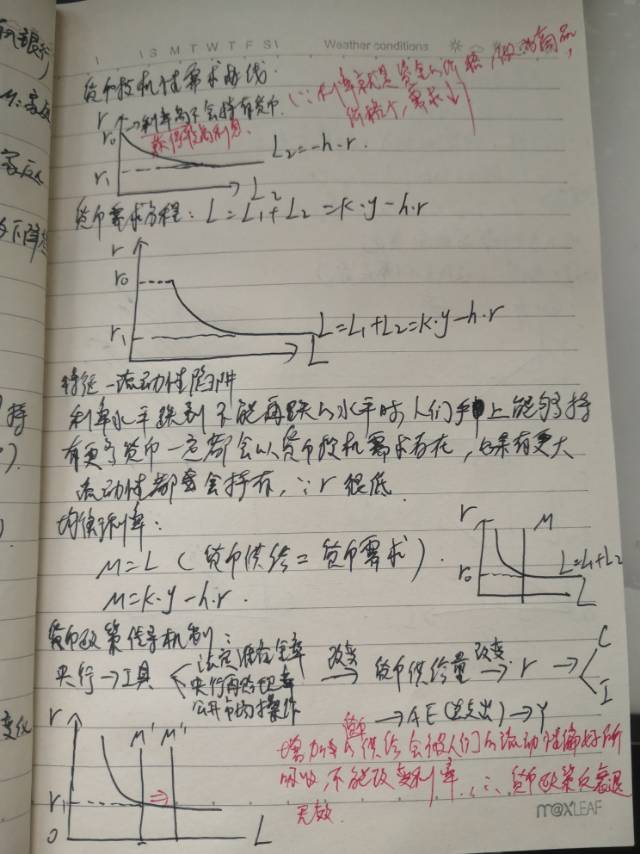 I S M T W T F S Weather conditions
货币投机性需求曲线.
(∵利率就是资金的价格,做为商品,
价格↑,需求↓)
r
r₀ →利率高不会持有货币.
r₁ L₂=-h·r.
L₂
货币需求方程: L=L₁+L₂=k·y-h·r
r
r₀
r₁ L=L₁+L₂=k·y-h·r
L
特征—流动性陷阱
利率水平跌到不能再跌的水平时,人们手上能够持
有更多货币一定都会以货币投机需求存在,如果有更大
流动性都会持有,∵r很低.
均衡利率:
M=L(货币供给=货币需求).
M=k·y-h·r.
r M
r₀ L=L₁+L₂
L
货币政策传导机制:
法定准备金率
央行→工具 央行再贴现率 改变→ 货币供给量 改变→ r → C
公开市场操作 I
→AE(总支出)→Y
r M' M''
r₁
0 L
增加货币的供给会被人们的流动性偏好所
吸收,不能改变利率.(∵货币政策反衰退
无效.
m@x'LEAF